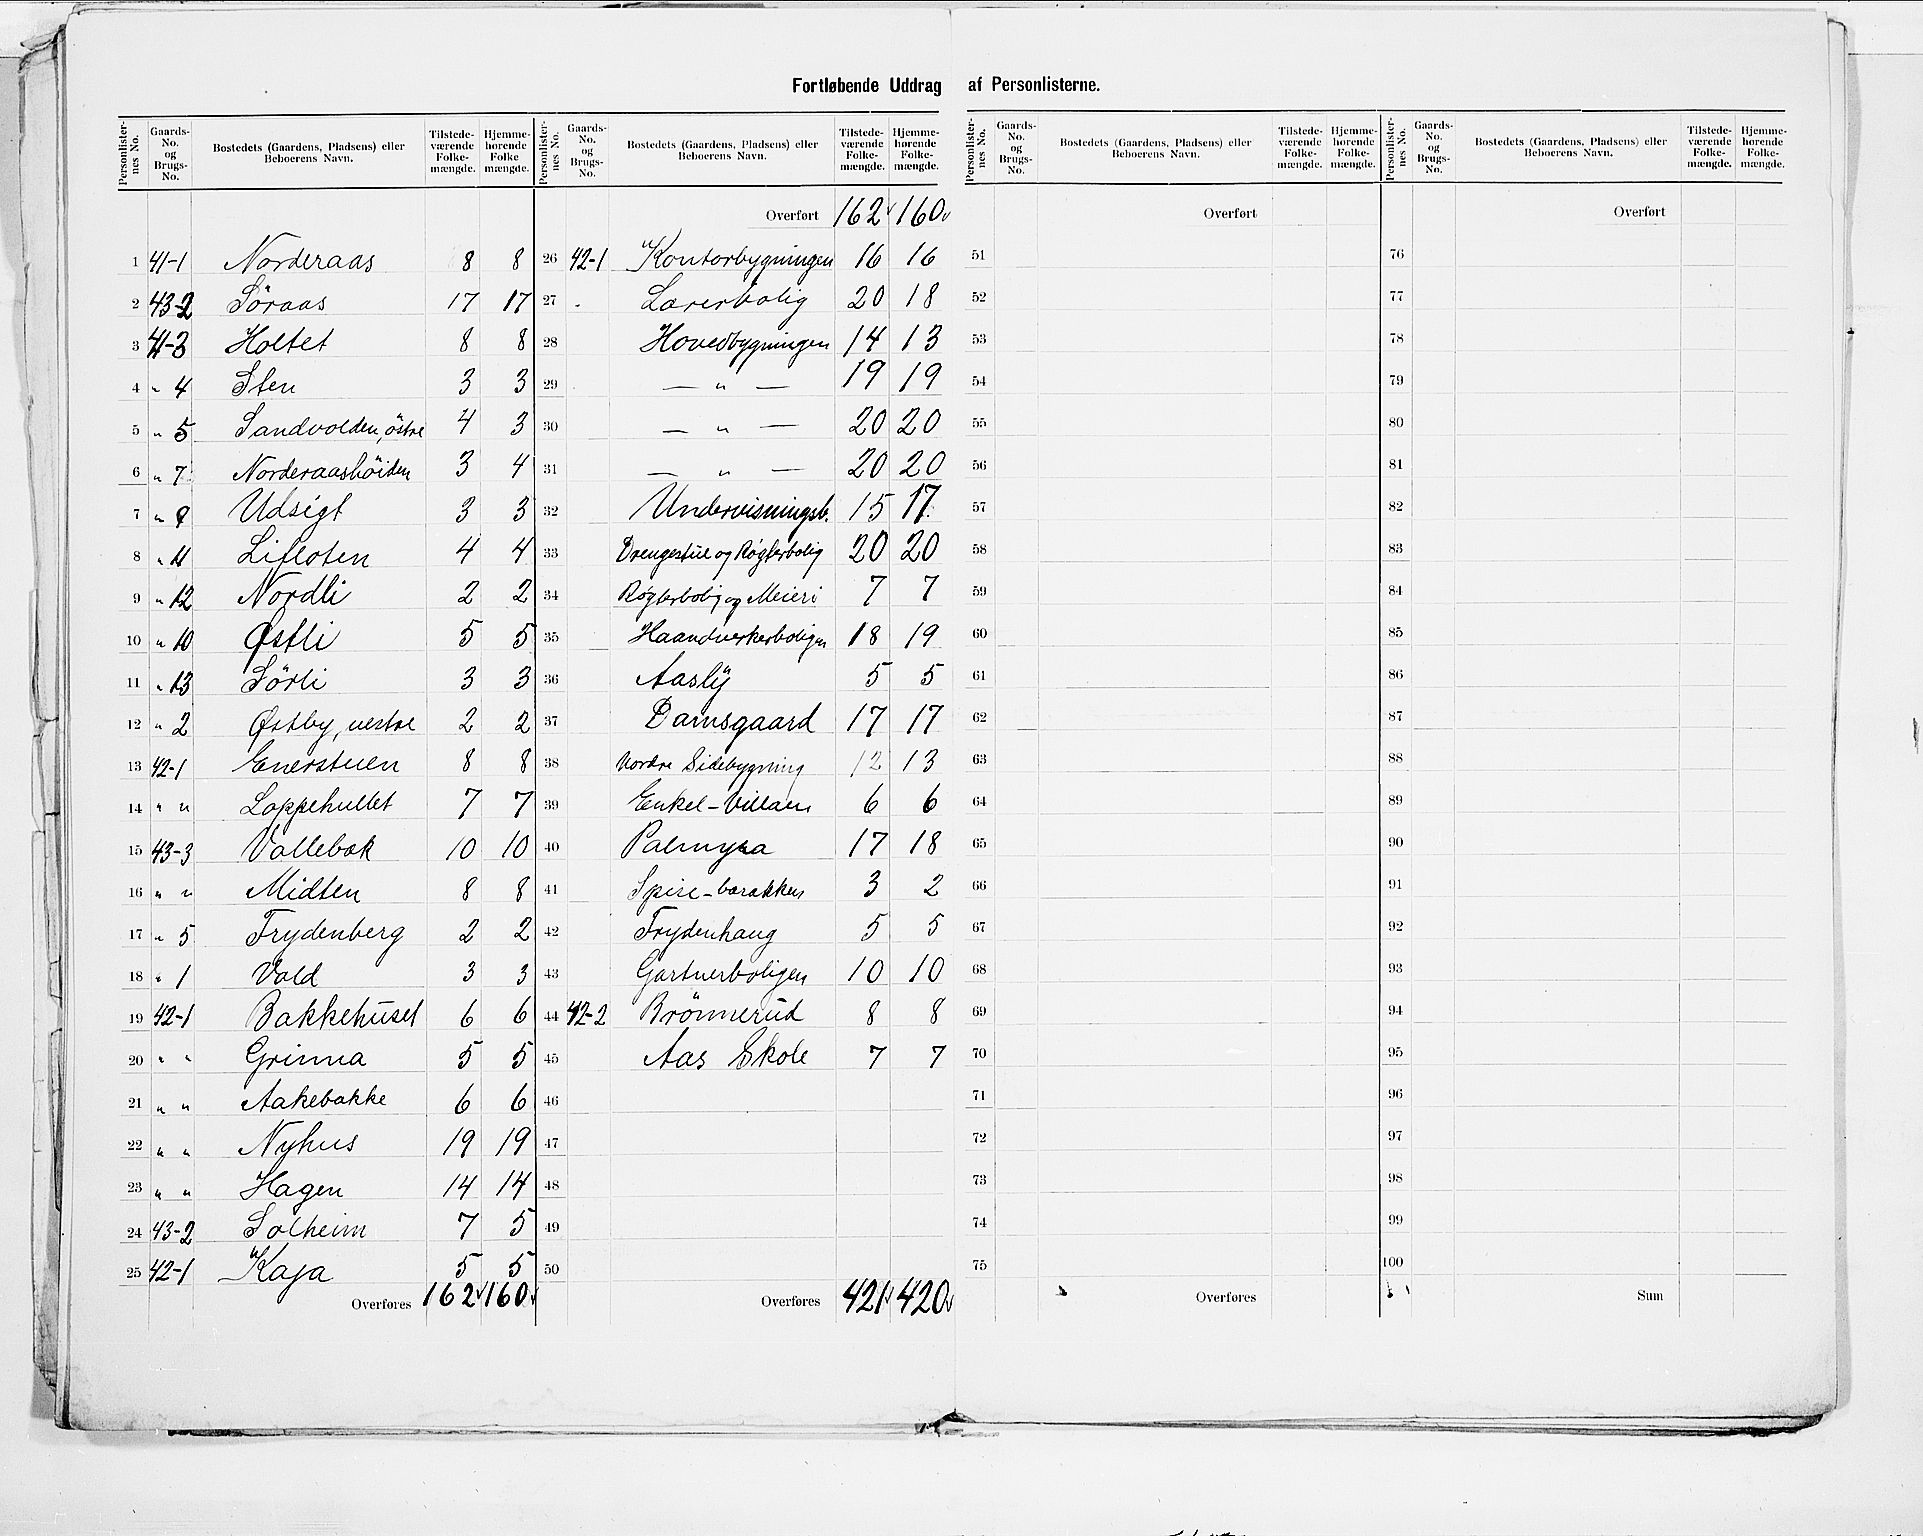 Fortløbende Uddrag af Personlisterne.
Personlisternes No. Gaards-No. og Brugs-No. Bostedets (Gaardens, Pladsens) eller Beboerens Navn. Tilstedeværende Folkemængde. Hjemmehørende Folkemængde.
1 41-1 Norderaas 8 8
2 43-2 Söraas 17 17
3 41-3 Holtet 8 8
4 " 4 Sten 3 3
5 " 5 Sandvolden, östre 4 3
6 " 7 Norderaashöiden 3 4
7 " 8 Udsigt 3 3
8 " 11 Lifloten 4 4
9 " 12 Nordli 2 2
10 " 10 Østli 5 5
11 " 13 Sörli 3 3
12 " 2 Østby, vestre 2 2
13 42-1 Enerstuen 8 8
14 " " Loppehullet 7 7
15 43-3 Vollebæk 10 10
16 " " Midten 8 8
17 " 5 Frydenberg 2 2
18 " 1 Vold 3 3
19 42-1 Bakkehuset 6 6
20 " " Grinna 5 5
21 " " Aakebakke 6 6
22 " " Nyhus 19 19
23 " " Hagen 14 14
24 43-2 Solheim 7 5
25 42-1 Kaja 5 5
Overføres 162 160
Personlisternes No. Gaards-No. og Brugs-No. Bostedets (Gaardens, Pladsens) eller Beboerens Navn. Tilstedeværende Folkemængde. Hjemmehørende Folkemængde.
Overført 162 160
26 42-1 Kontorbygningen 16 16
27 " Lærerbolig 20 18
28 Hovedbygningen 14 13
29 — " — 19 19
30 — " — 20 20
31 — " — 20 20
32 Undervisningsb. 15 17
33 Drengestue og Røgterbolig 20 20
34 Røgterbolig og Meieri 7 7
35 Haandverkerboligen 18 19
36 Aaslÿ 5 5
37 Damsgaard 17 17
38 Nordre Sidebygning 12 13
39 Enkel-Villaen 6 6
40 Palmyra 17 18
41 Spise-barakken 3 2
42 Frydenhaug 5 5
43 Gartnerboligen 10 10
44 42-2 Brönnerud 8 8
45 Aas Skole 7 7
46
47
48
49
50
Overføres 421 420
Personlisternes No. Gaards-No. og Brugs-No. Bostedets (Gaardens, Pladsens) eller Beboerens Navn. Tilstedeværende Folkemængde. Hjemmehørende Folkemængde.
Overført
51
52
53
54
55
56
57
58
59
60
61
62
63
64
65
66
67
68
69
70
71
72
73
74
75
Overføres
Personlisternes No. Gaards-No. og Brugs-No. Bostedets (Gaardens, Pladsens) eller Beboerens Navn. Tilstedeværende Folkemængde. Hjemmehørende Folkemængde.
Overført
76
77
78
79
80
81
82
83
84
85
86
87
88
89
90
91
92
93
94
95
96
97
98
99
100
Sum